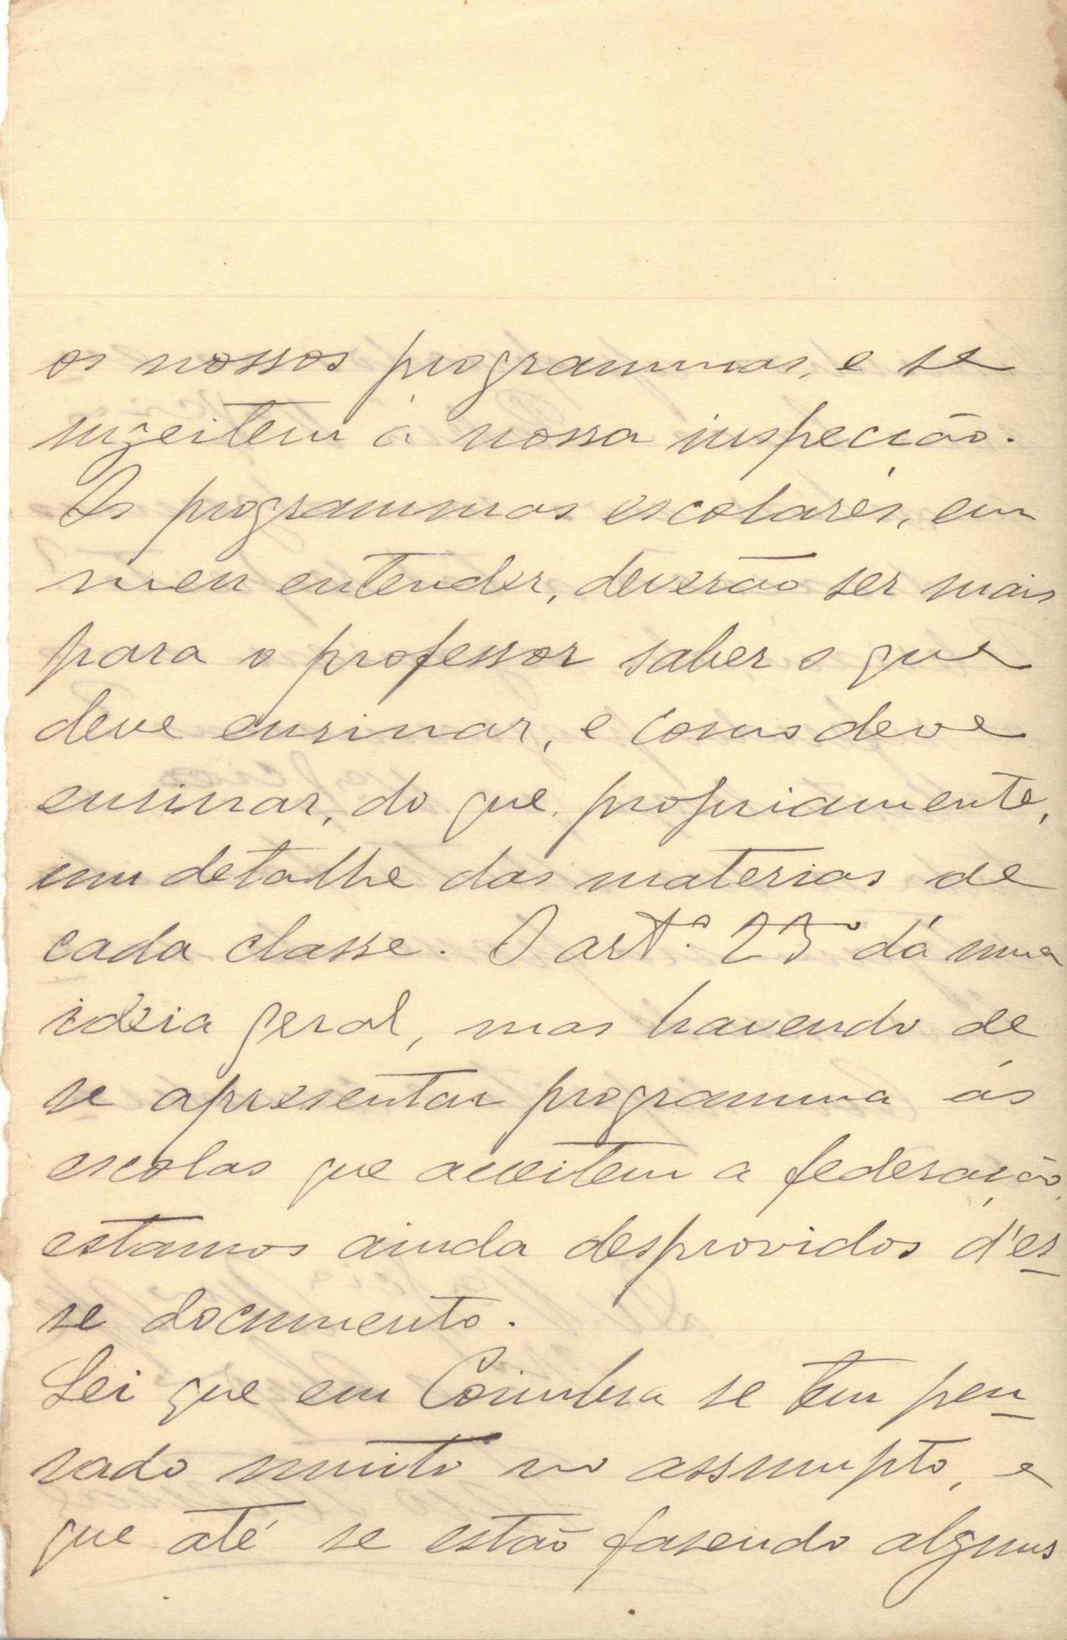 os nossos programmas, e se
sugeitem á nossa inspecção.
Os programmas escolares, em
meu entender, deverão ser mais
para o professor saber o que
deve ensinar, e como deve
ensinar, do que, propriamente,
um detalhe das materias de
cada classe. O artº 25º dá uma
ideia geral, mas havendo de
se apresentar programma ás
escolas que acceitem a federação,
estamos ainda desprovidos d'es-
se documento.
Sei que em Coimbra se tem pen-
sado muito no assumpto, e
que até se estão fasendo alguns